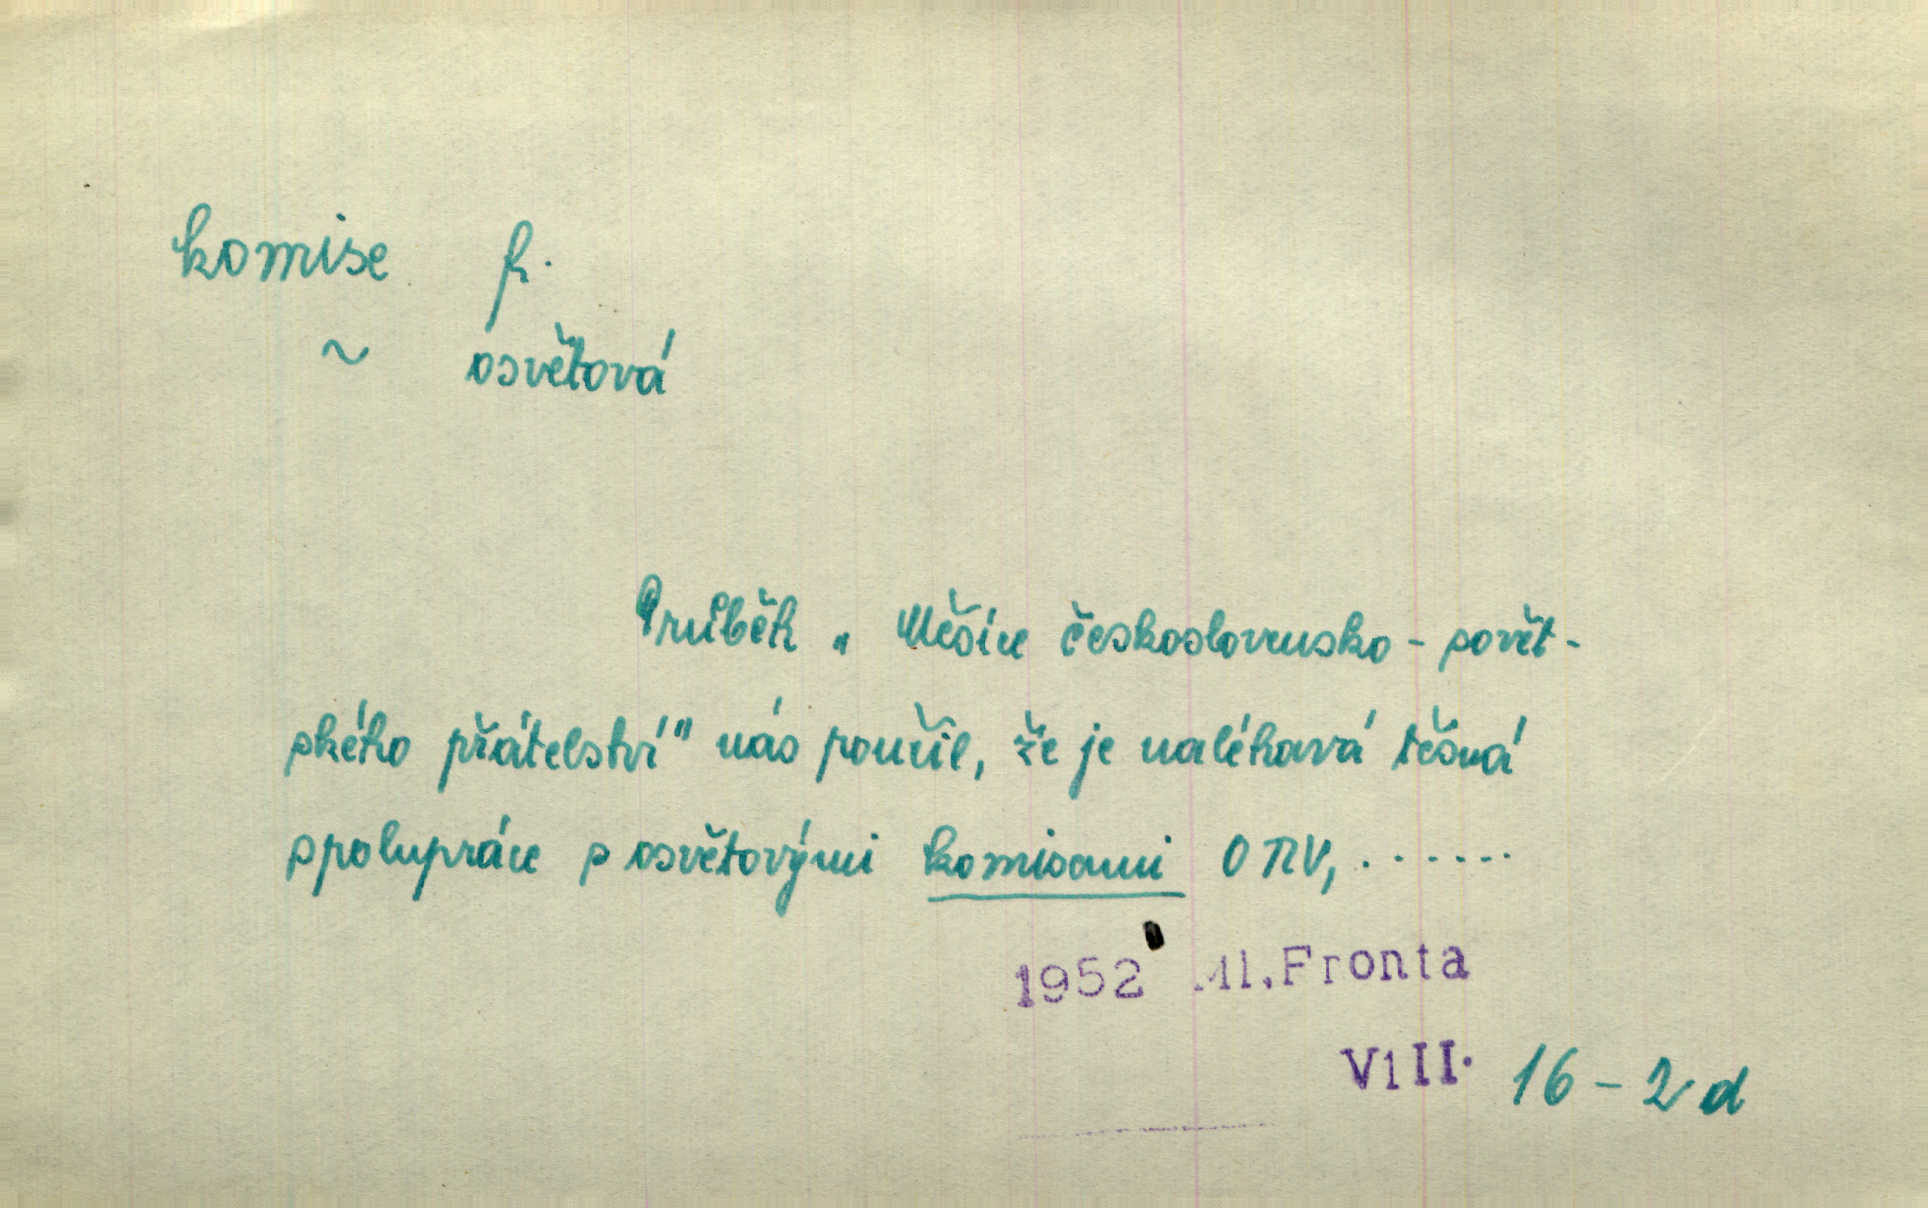 komise f.
~ osvětová
Průběh „Měsíce československo-sovět-
ského přátelství" nás poučil, že je naléhavá těsná
spolupráce s osvětovými komisemi ONV,.......
1952 Ml.Fronta
VIII. 16-2d